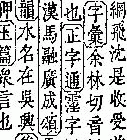 網飛沈是收受
字彙余林切音
也正字通字
漢馬融廣成頌
水名在吳興
玉篇衆言也